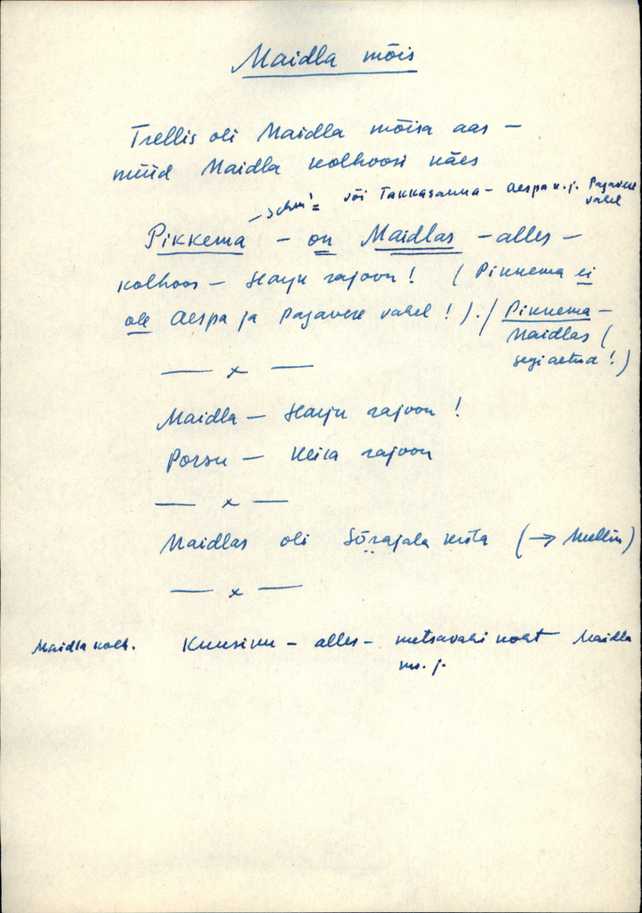 Maidla mõis
Trellis oli Maidla mõisa aas —
nüüd Maidla kolhoosi käes
või Takkasauna — Aespa v.j. Pajavere
vahel
Pikkema — on Maidlas — alles —
kolhoos — Harju rajoon! (Pikkema ei
ole Aespa ja Pajavere vahel!). / Pikkema —
Maidlas (
segi aetud!)
— x —
Maidla — Harju rajoon!
Porsu — Keila rajoon
— x —
Maidlas oli Sõrajala küla (→ Mellin)
— x —
Maidla kolh. Kuusiku — alles — metsavahi koht Maidla